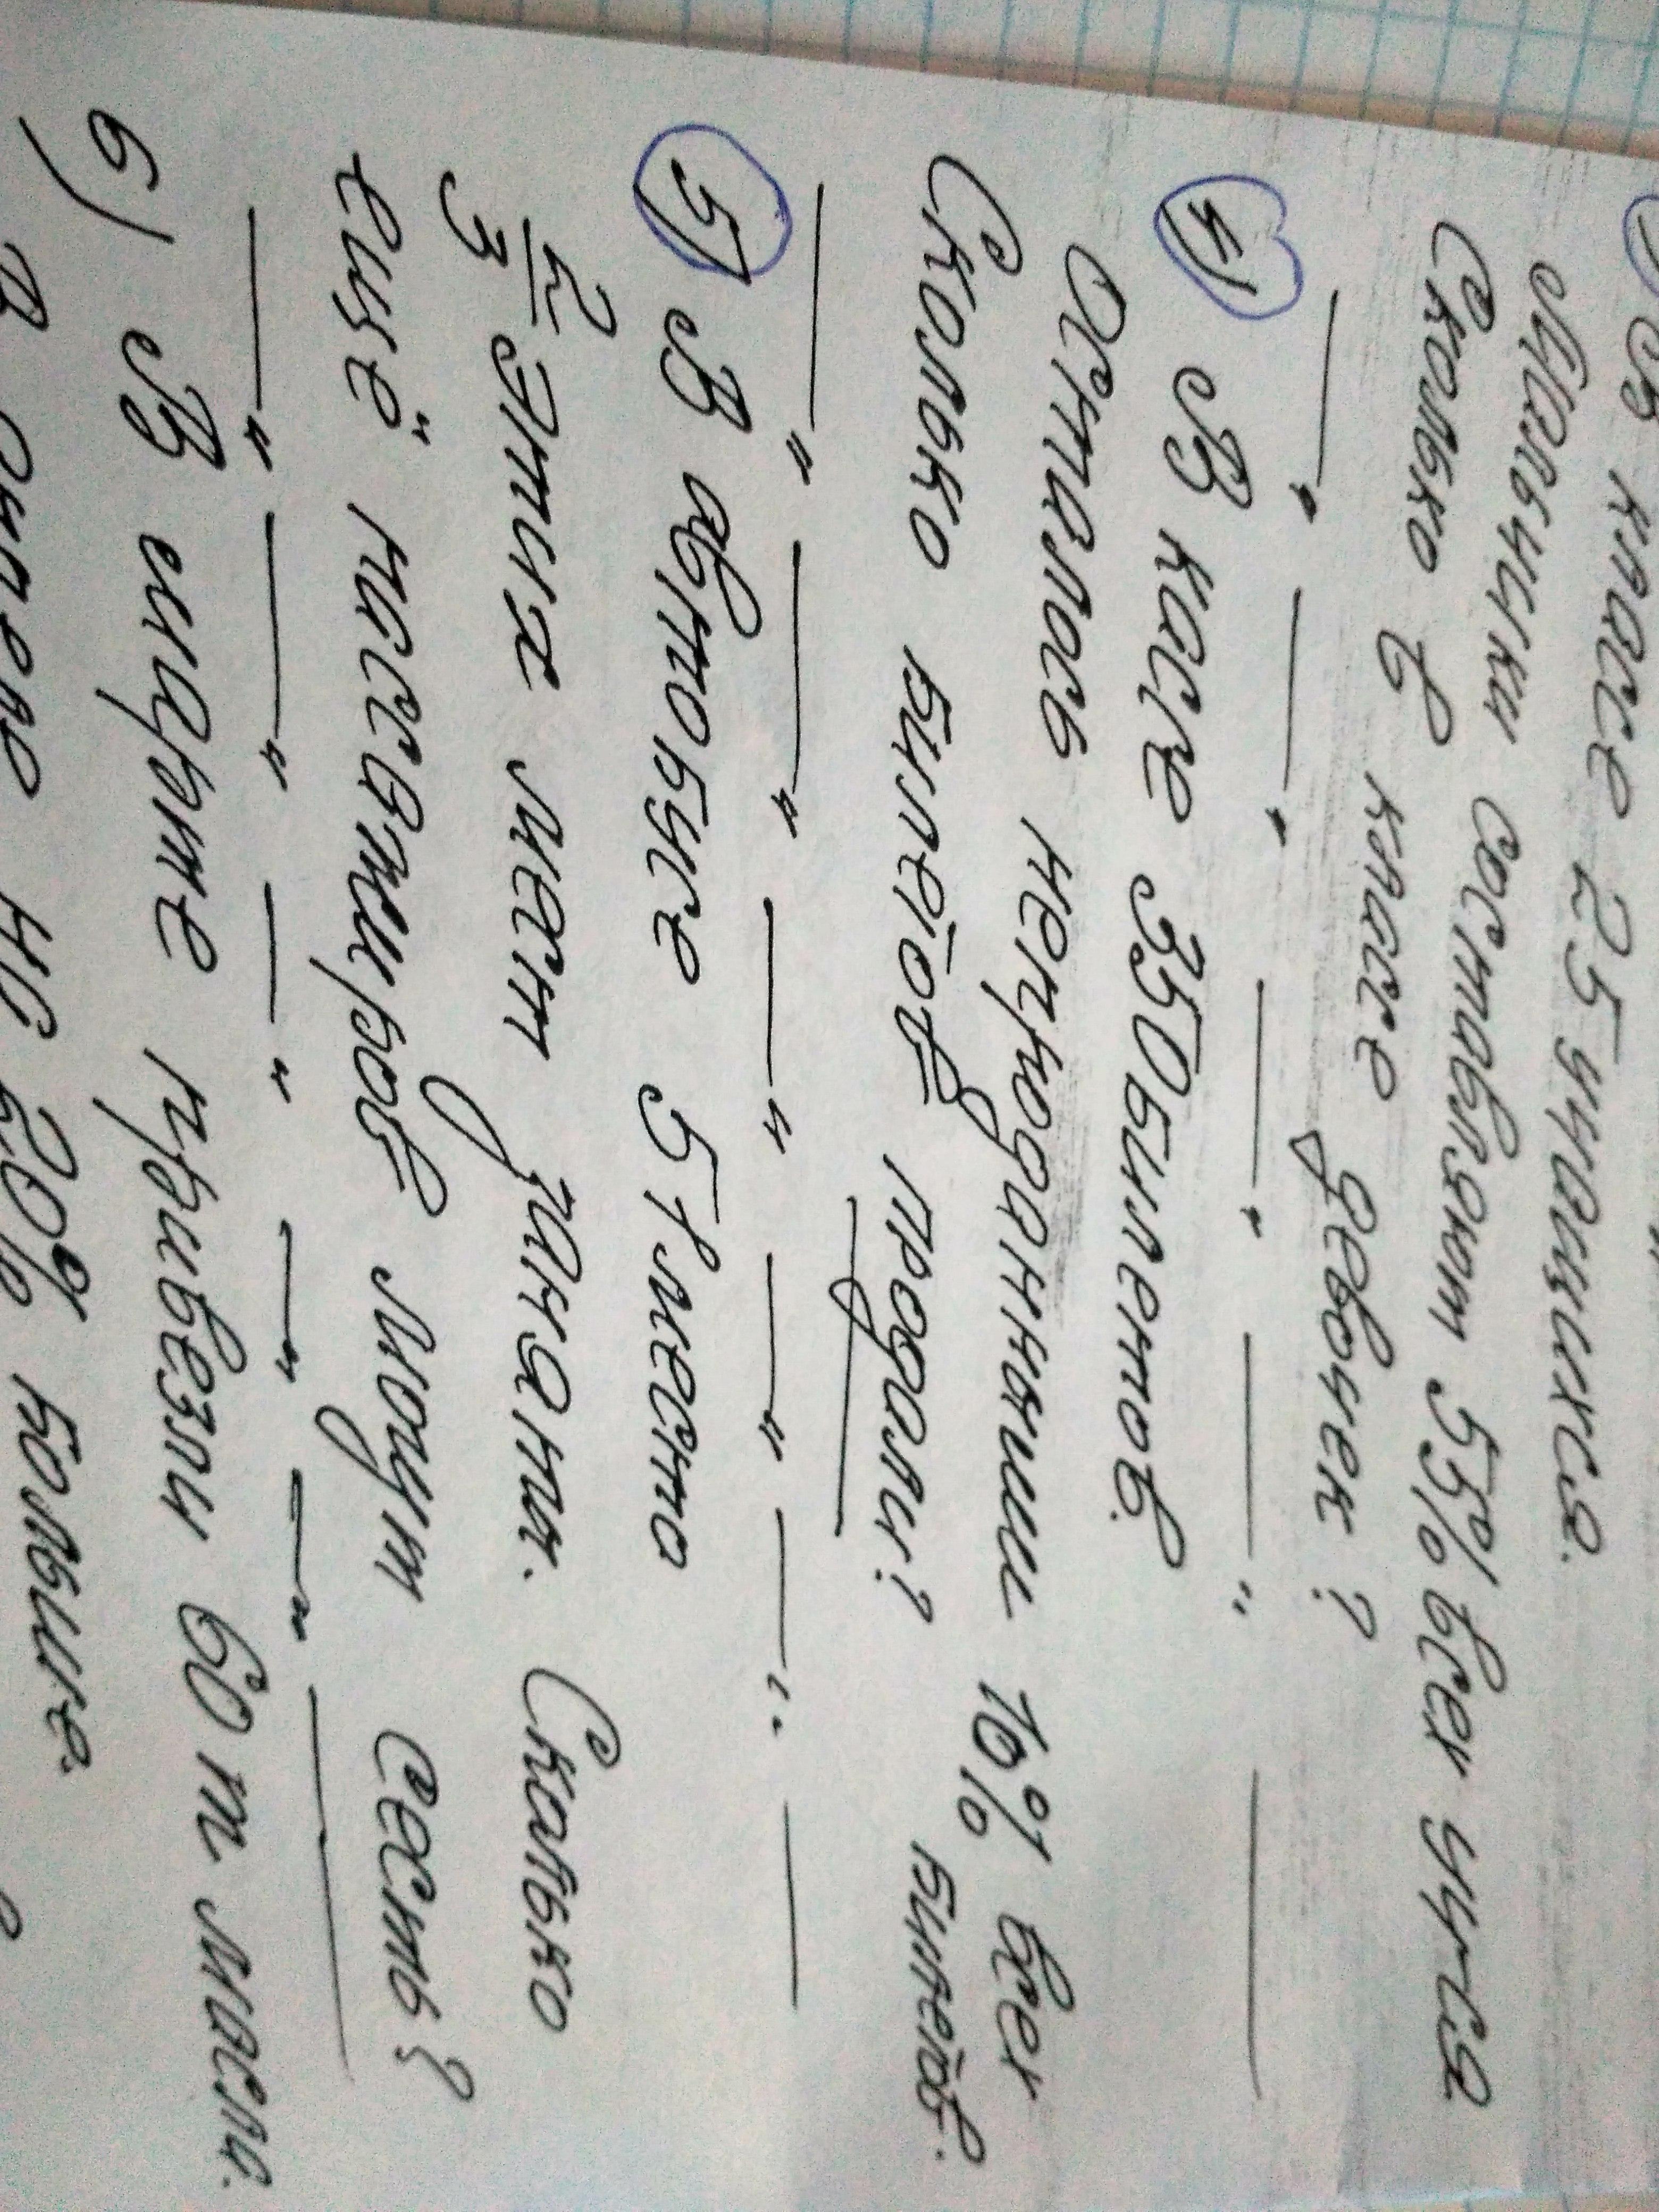 В классе 25 учащихся.
Мальчики составляют 55% всех уч-ся
Сколько в классе девочек?
4) В кассе 350 билетов.
Осталось непроданными 10% всех
Сколько билетов продали? билетов.
5) В автобусе 51 место
2/3 этих мест заняты. Сколько
ещё пассажиров могут сесть?
6) В марте привезли 60 т масла.
на 20% больше.